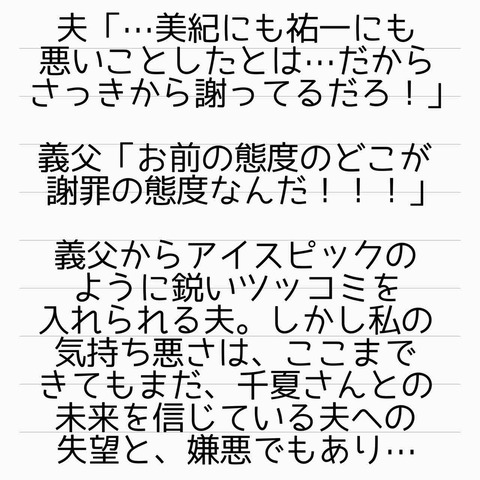 夫「…美紀にも祐一にも
悪いことしたとは…だから
さっきから謝ってるだろ！」
義父「お前の態度のどこが
謝罪の態度なんだ！！！」
義父からアイスピックの
ように鋭いツッコミを
入れられる夫。しかし私の
気持ち悪さは、ここまで
きてもまだ、千夏さんとの
未来を信じている夫への
失望と、嫌悪でもあり…